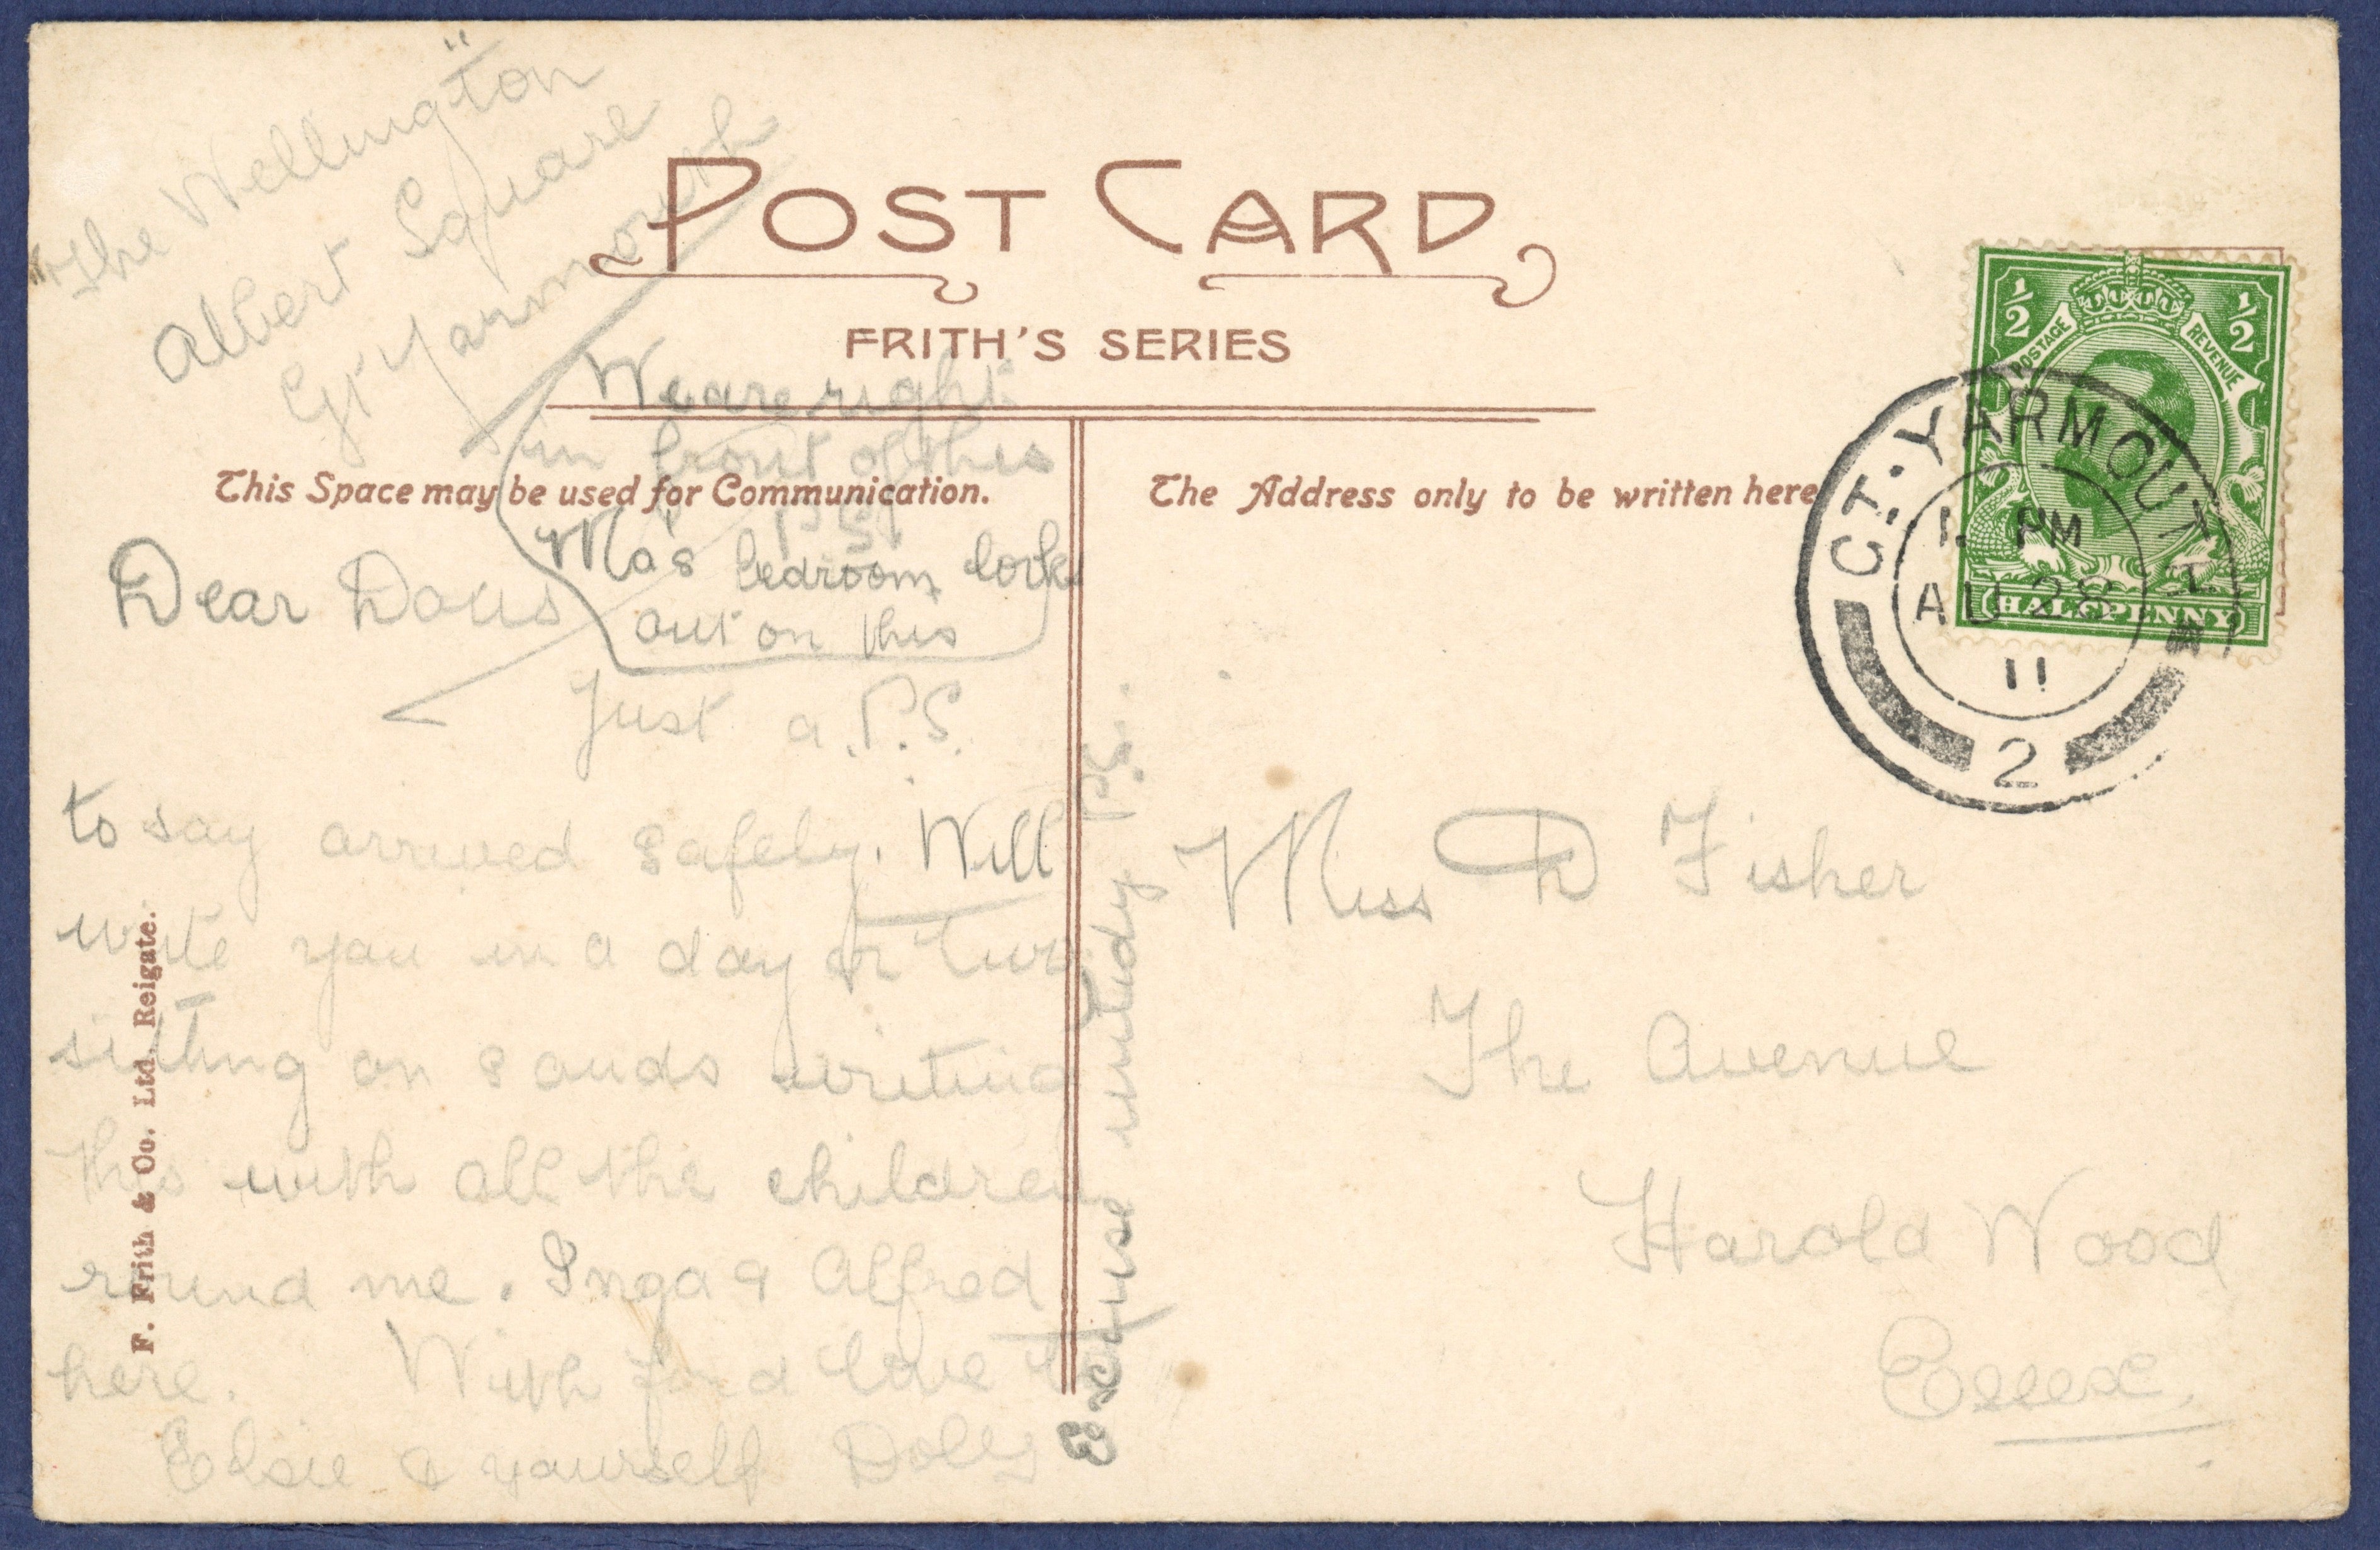 "The Wellington"
Albert Square
Gt Yarmouth
POST CARD
FRITH'S SERIES
We are right
in front of this
This Space may be used for Communication.
The Address only to be written here
Ma's bedroom looks
out on this
Dear Doris
Just a P.S.
to say arrived safely. Will
write you in a day or two
sitting on sands writing
this with all the children
round me. Inga & Alfred
here. With fond love to
Elsie & yourself Dolly
Excuse untidy P.S.
F. Frith & Co. Ltd. Reigate.
Miss D Fisher
The Avenue
Harold Wood
Essex.
1/2 1/2
POSTAGE REVENUE
HALFPENNY
GT. YARMOUTH
1. PM
AU 28
11
2